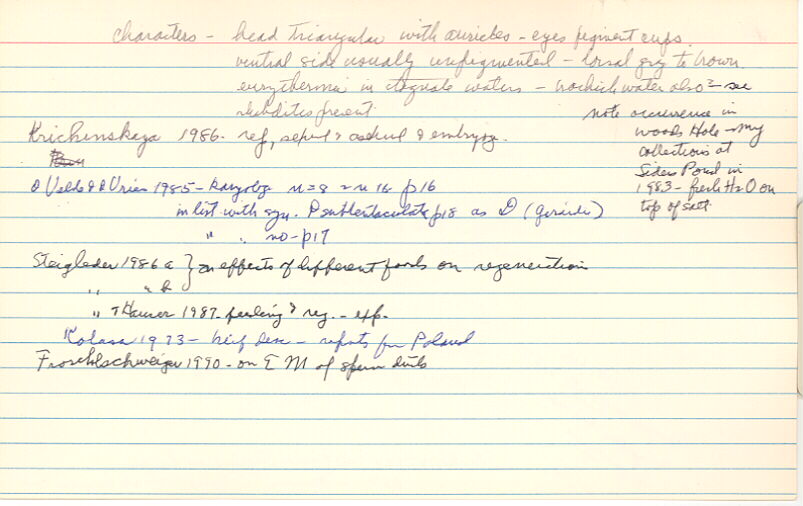 characters - head triangular with auricles - eyes pigment cups.
ventral side usually unpigmented - dorsal gray to brown.
in stagnate waters - brackish water also - see
rhabdites present
note occurrence in
Woods Hole - my
collections at
Siders Pond in
1983 - fresh H2O on
top of salt.
Krichinskaya 1986. ref, sexual & asexual & embryog.
1985 - Karyology n=8 2n 16 p16
in list with syn. p18 as D (Girardia)
" " no - p17
Steigleder 1986 a } on effects of different foods on regeneration
" " b
" & Hauser 1987 - feeding & reg. - exp.
Kolasa 1973 - brief desc - reports for Poland
Froschlschweiger 1990 - on E M of sperm ducts